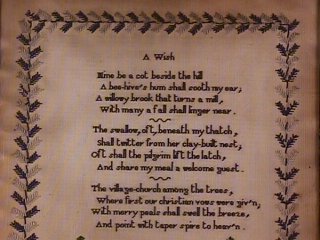 A Wish
Mine be a cot beside the hill
A bee-hive's hum shall sooth my ear;
A willowy brook that turns a mill,
With many a fall shall linger near.
The swallow, oft, beneath my thatch,
Shall twitter from her clay-built nest,
Oft shall the pilgrim lift the latch,
And share my meal a welcome guest.
The village-church among the trees,
Where first our christian vows were giv'n,
With merry peals shall swell the breeze,
And point with taper spire to heav'n.